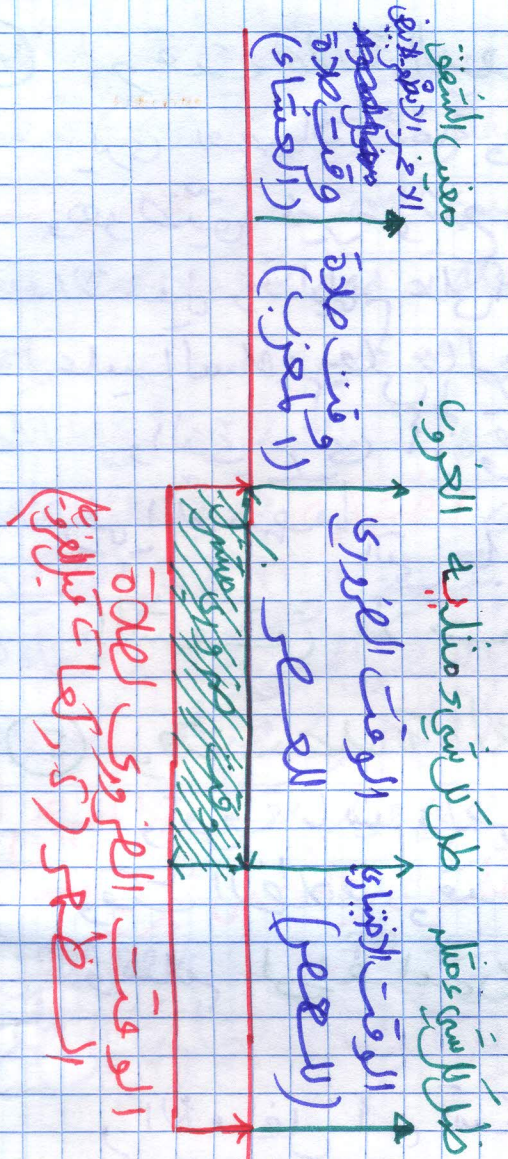 ظل كل شيء مثله
ظل كل شيء مثليه
الغروب
مغيب الشفق
الوقت الاختياري
(للعصر)
الوقت الضروري
للعصر
وقت صلاة
(المغرب)
وقت صلاة
(العشاء)
وقت ضروري مشترك
الوقت الضروري لصلاة
الظهر
قبل الغروب